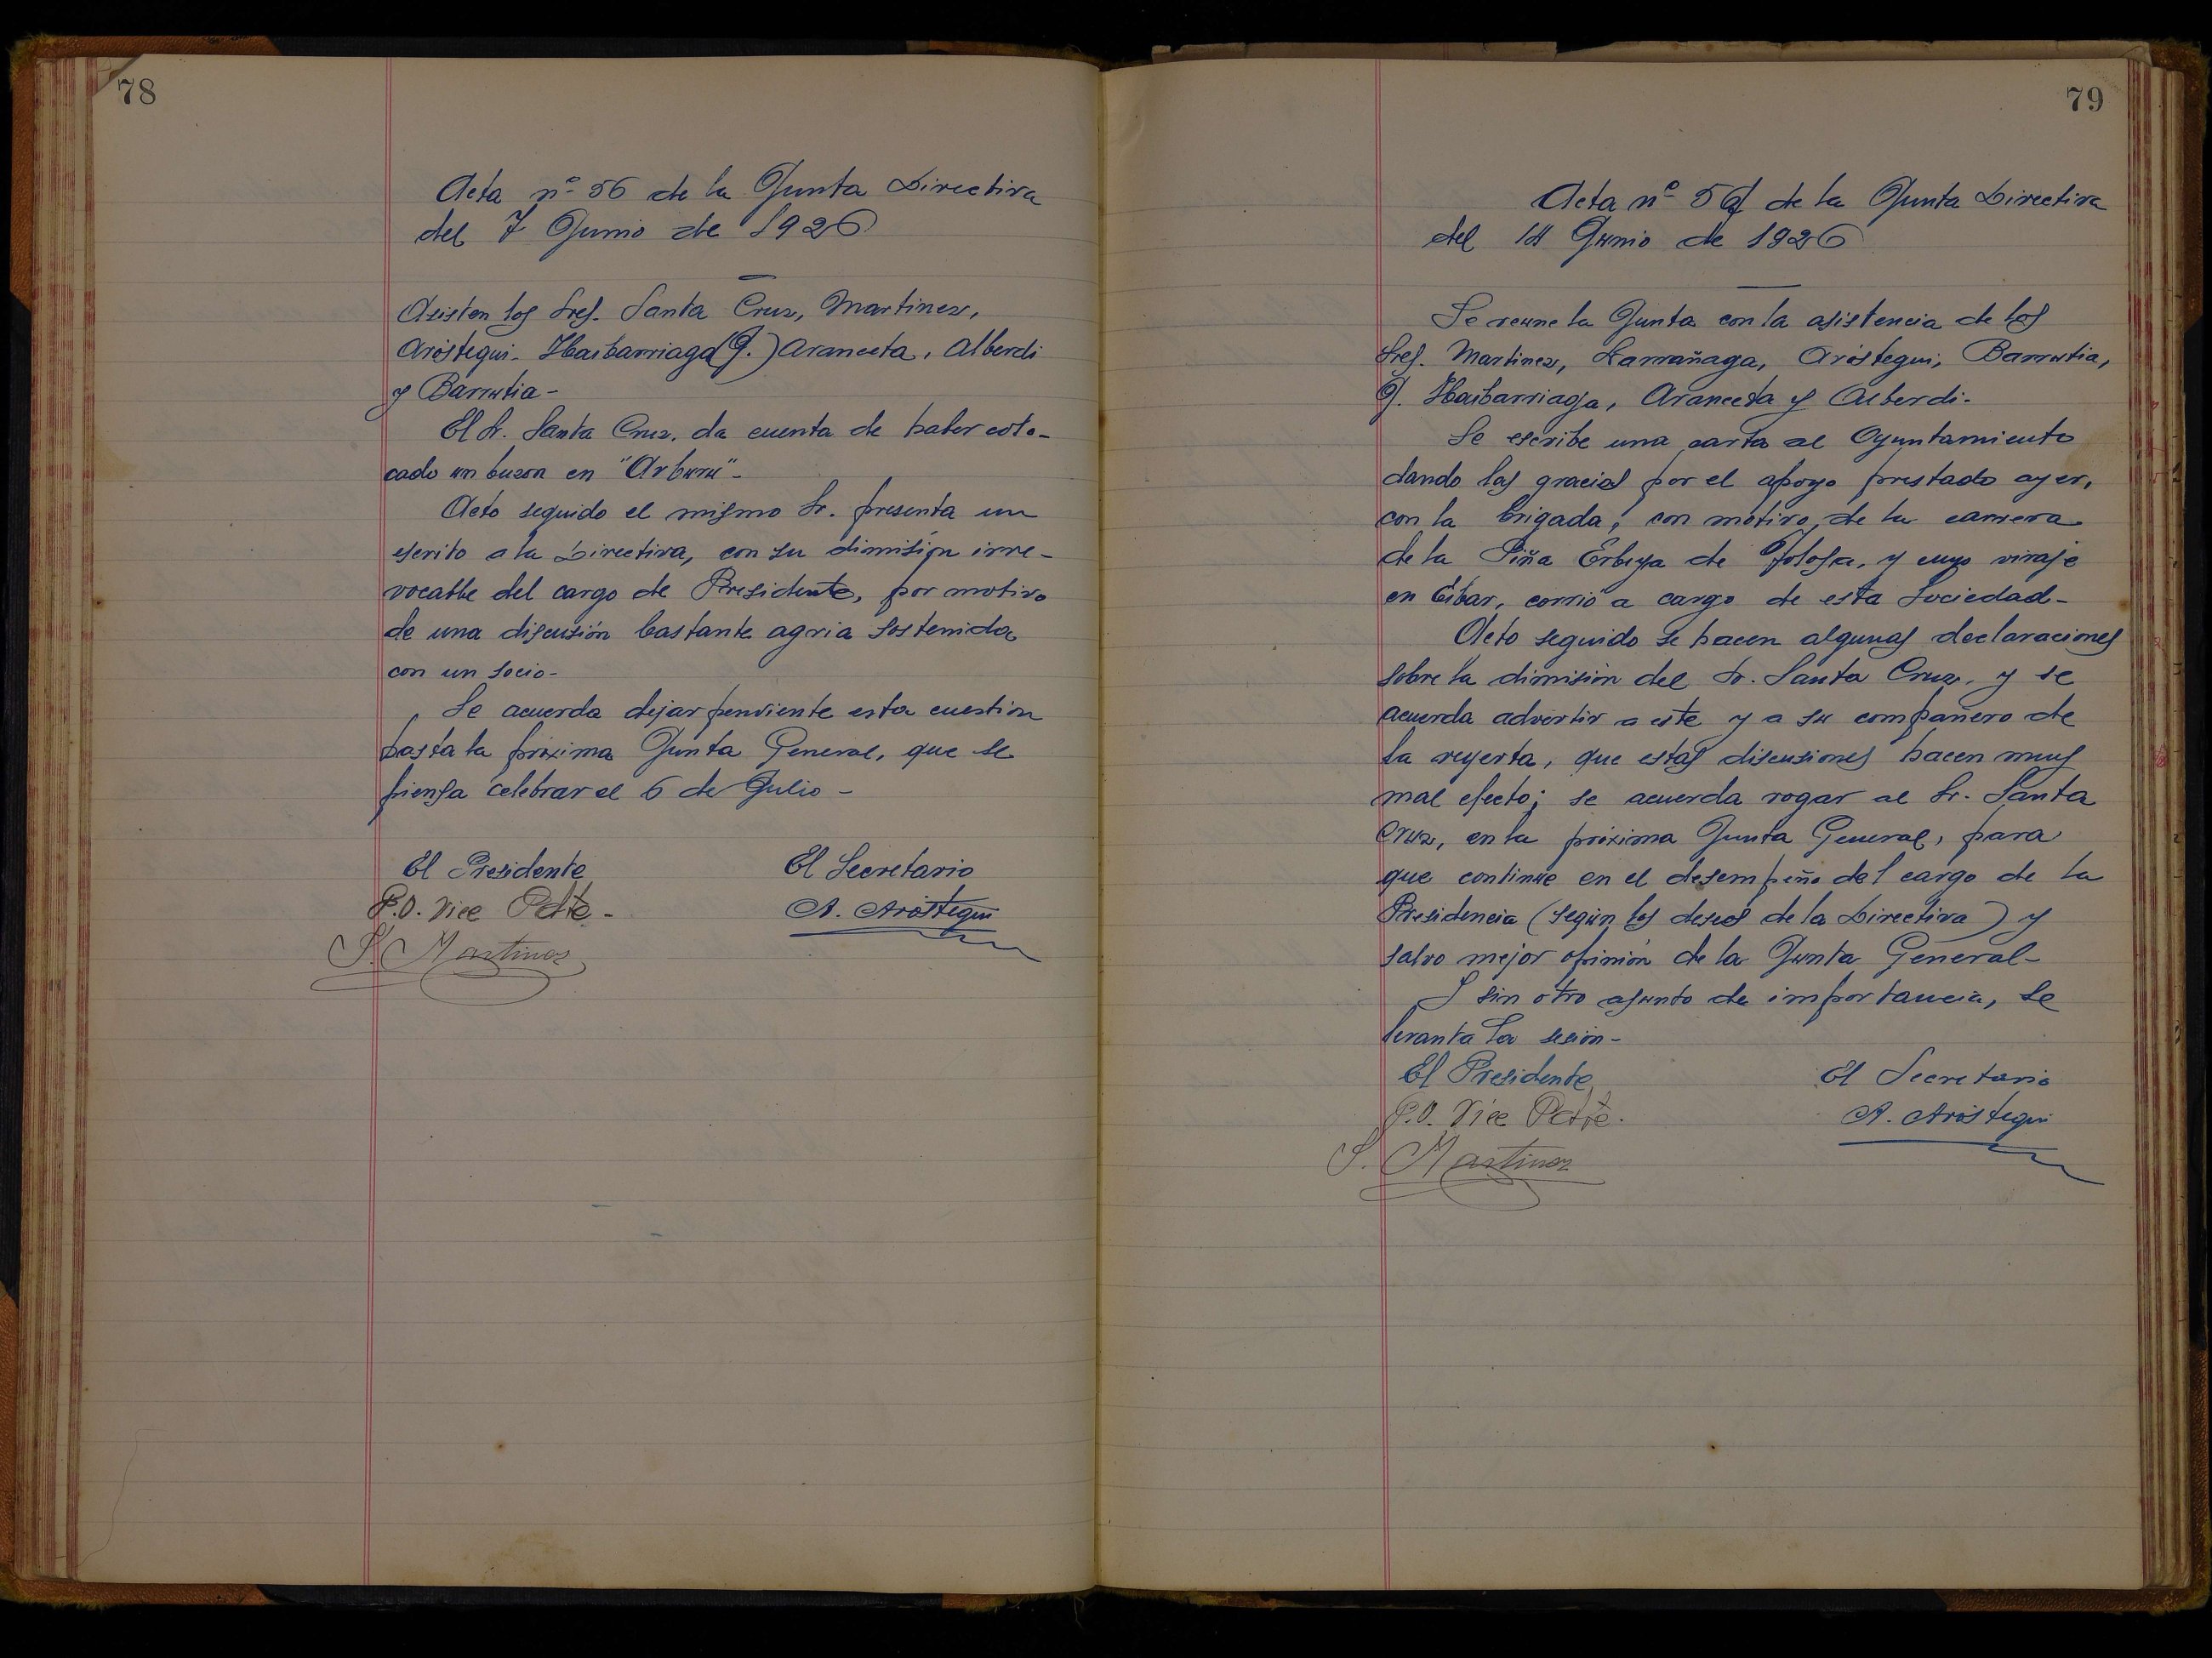 78
Acta nº 56 de la Junta Directiva
del 7 Junio de 1926
Asisten los Sres. Santa Cruz, Martinez,
Aróstegui. Ibaibarriaga (J.) Aranceta, Alberdi
y Barrutia-
El Sr. Santa Cruz, da cuenta de haber colo-
cado un buzon en "Arburu"-
Acto seguido el mismo Sr. presenta un
escrito a la Directiva, con su dimisión irre-
vocable del cargo de Presidente, por motivo
de una discusión bastante agria sostenida
con un socio-
Se acuerda dejar pendiente esta cuestion
hasta la próxima Junta General, que se
piensa celebrar el 6 de Julio-
El Presidente
El Secretario
P.O. Vice Pdte-
A. Aróstegui
S. Martinez
79
Acta nº 57 de la Junta Directiva
del 14 Junio de 1926
Se reune la Junta con la asistencia de los
Sres. Martinez, Larrañaga, Aróstegui, Barrutia,
J. Ibaibarriaga, Aranceta y Alberdi-
Se escribe una carta al Ayuntamiento
dando las gracias por el apoyo prestado ayer,
con la brigada, con motivo de la carrera
de la Peña de Tolosa, y cuyo viraje
en Eibar, corrió a cargo de esta Sociedad-
Acto seguido se hacen algunas declaraciones
sobre la dimisión del Sr. Santa Cruz, y se
acuerda advertir a este y a su compañero de
la reyerta, que estas discusiones hacen muy
mal efecto; se acuerda rogar al Sr. Santa
Cruz, en la próxima Junta General, para
que continue en el desempeño del cargo de la
Presidencia (según los deseos de la Directiva) y
salvo mejor opinión de la Junta General-
Y sin otro asunto de importancia, se
levanta la sesión-
El Presidente
El Secretario
P.O. Vice Pdte.
A. Aróstegui
S. Martinez